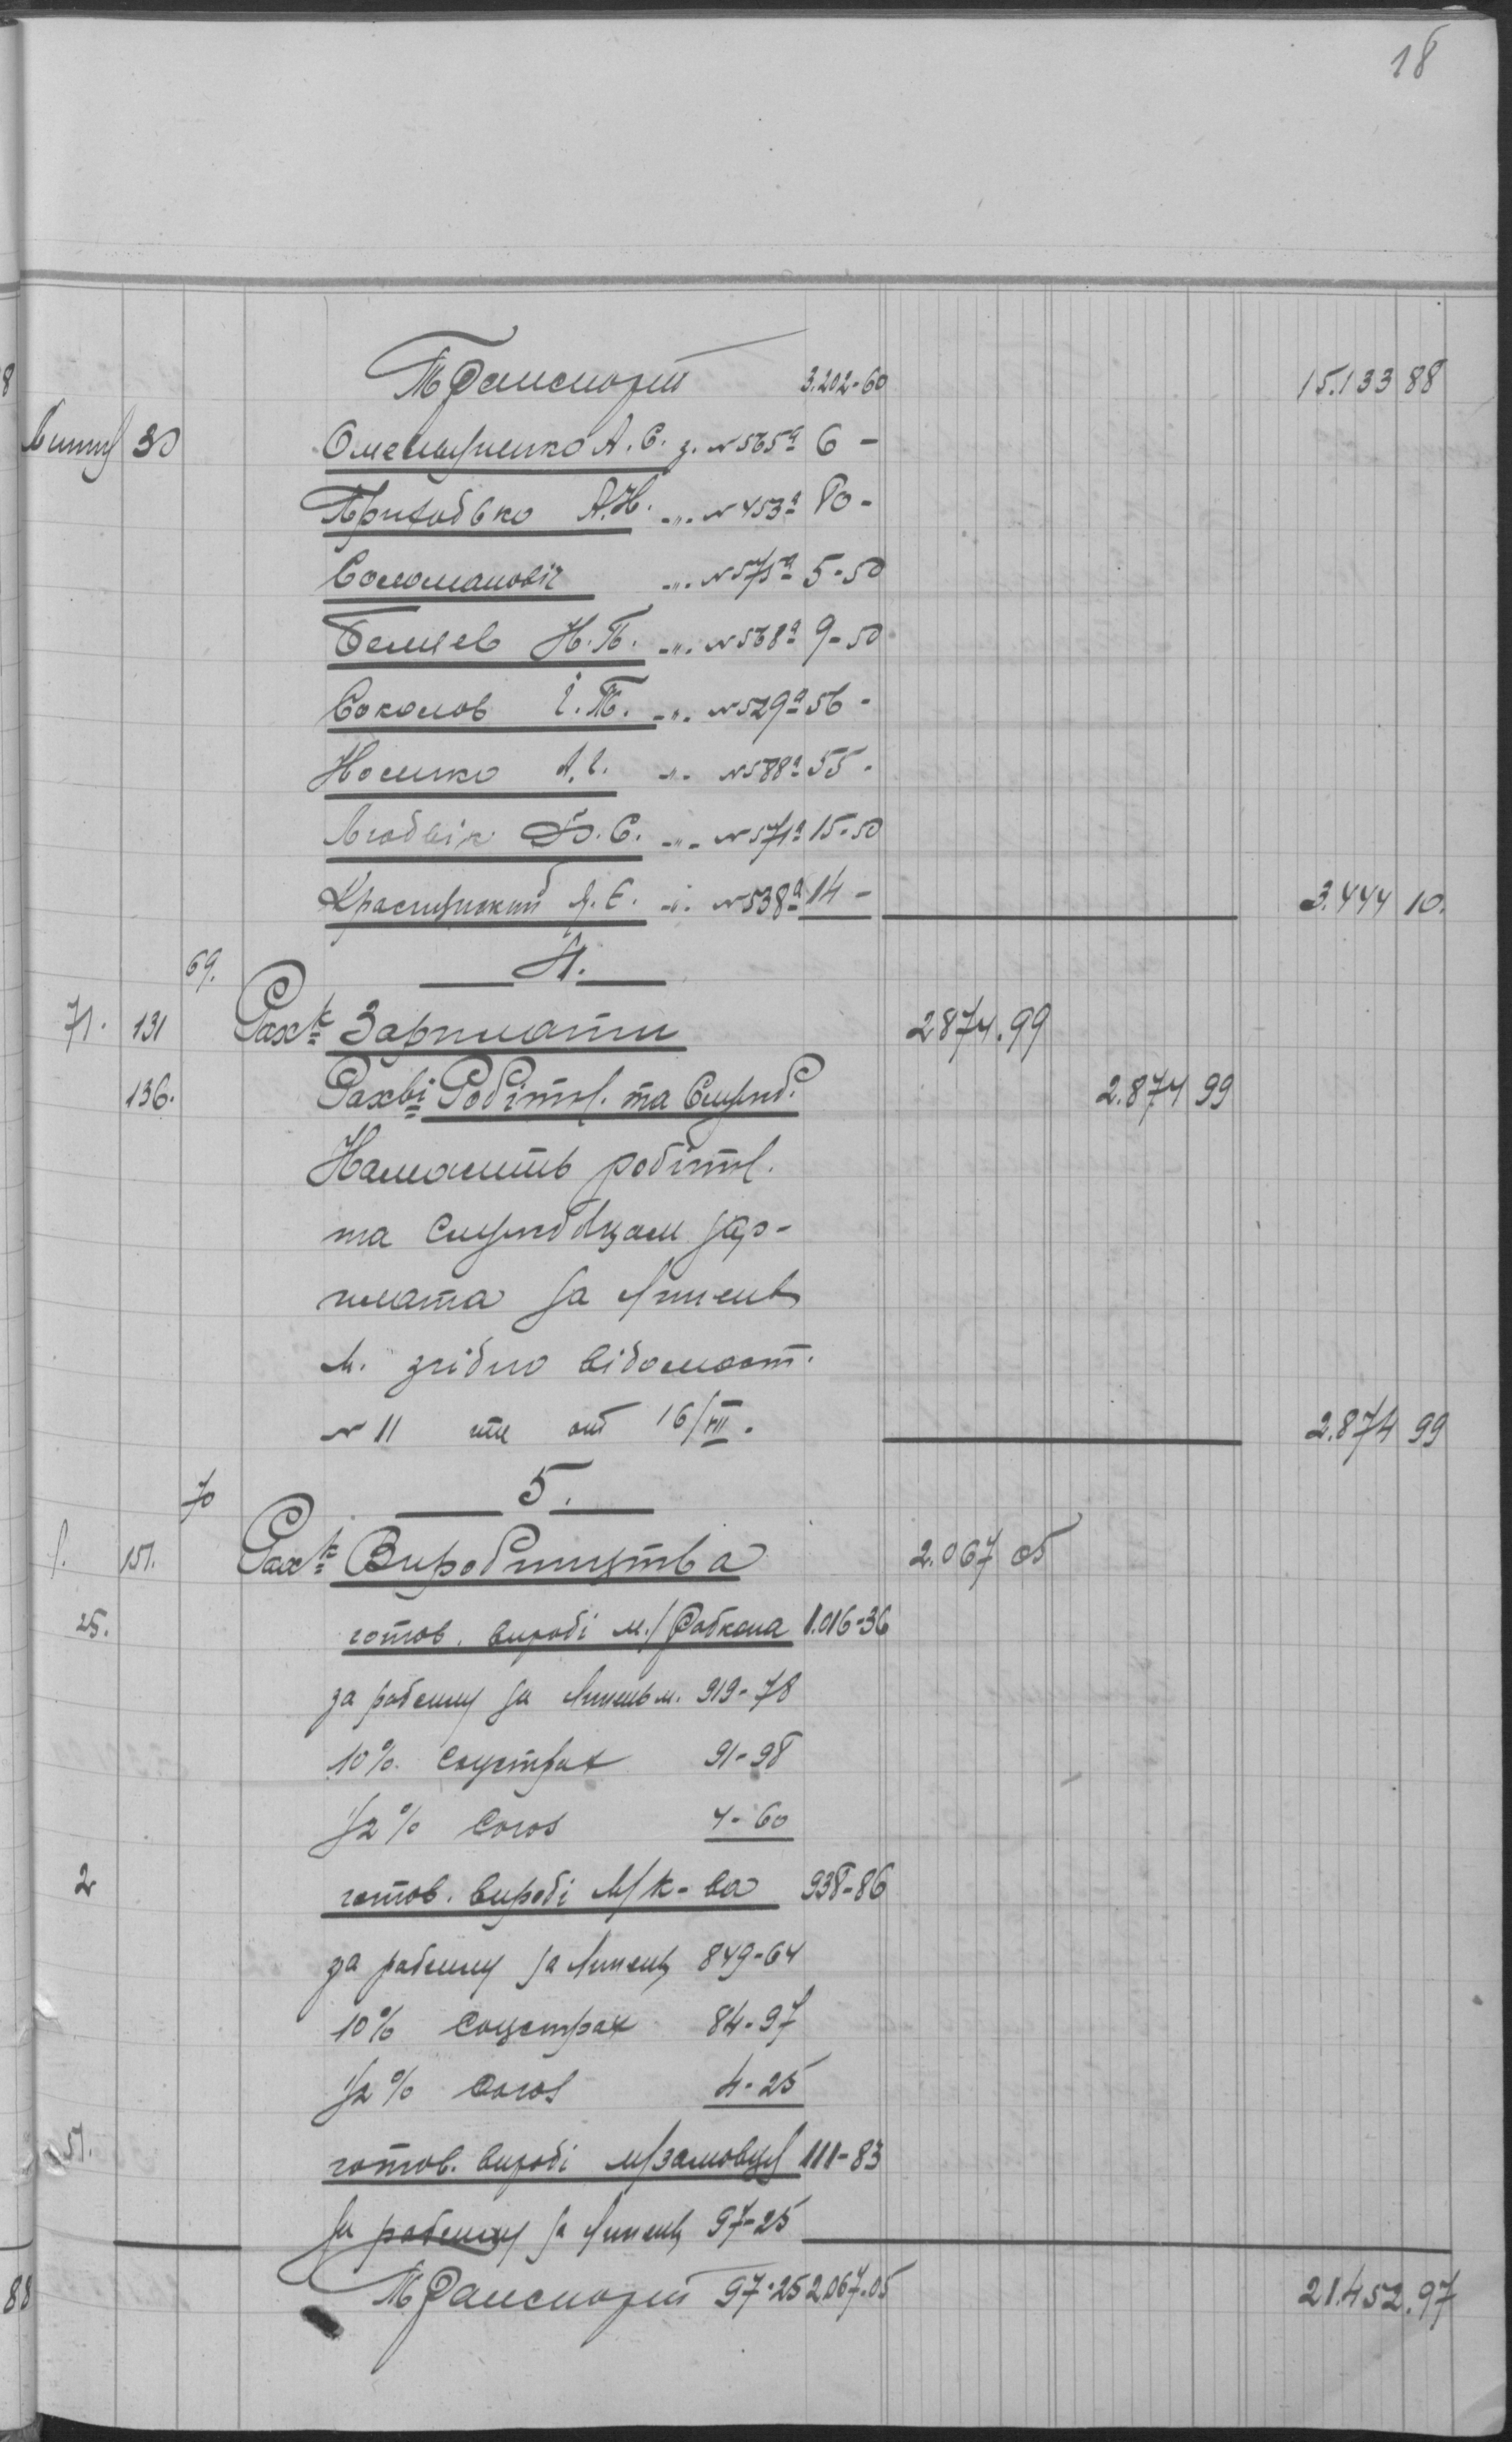 18
Транспорт 3.202-60 15.133 88
30 Омельуненко А. С. з. № 565а 6 -
Приходько А.Н. -"- № 453а 80 -
Соломановіч -"- № 575а 5-50
Н.П. -"- № 568а 9-50
Соколов І.Т. -"- № 529а 56 -
Носенко А.І. -"- № 588а 55 -
С. -"- № 571а 15-50
Є. -"- № 538а 14 - 3.444 10.
69. 4.
71. 131 Рах-к Зарплати 2874.99
136. Рах-ві Робітн. та Службс. 2.874 99
робітн.
та службовцам зар-
плата за Липень
м. згідно відомост.
№ 11 от 16/VII. 2.874 99
70 5.
1. 151. Рах-к Виробництва 2.067 05
25. готов. виробі м/Робкопа 1.016-36
за рабсилу за Липень м. 919-78
10% Соцстрах 91-98
1/2% Союз 4-60
2 готов. виробі М/к-ва 938-86
за рабсилу за Липень 849-64
10% Соцстрах 84-97
1/2% Союз 4-25
51. готов. виробі м/замовц. 111-83
за рабсилу за Липень 97-25
Транспорт 97-25 2.067-05 21.452.97